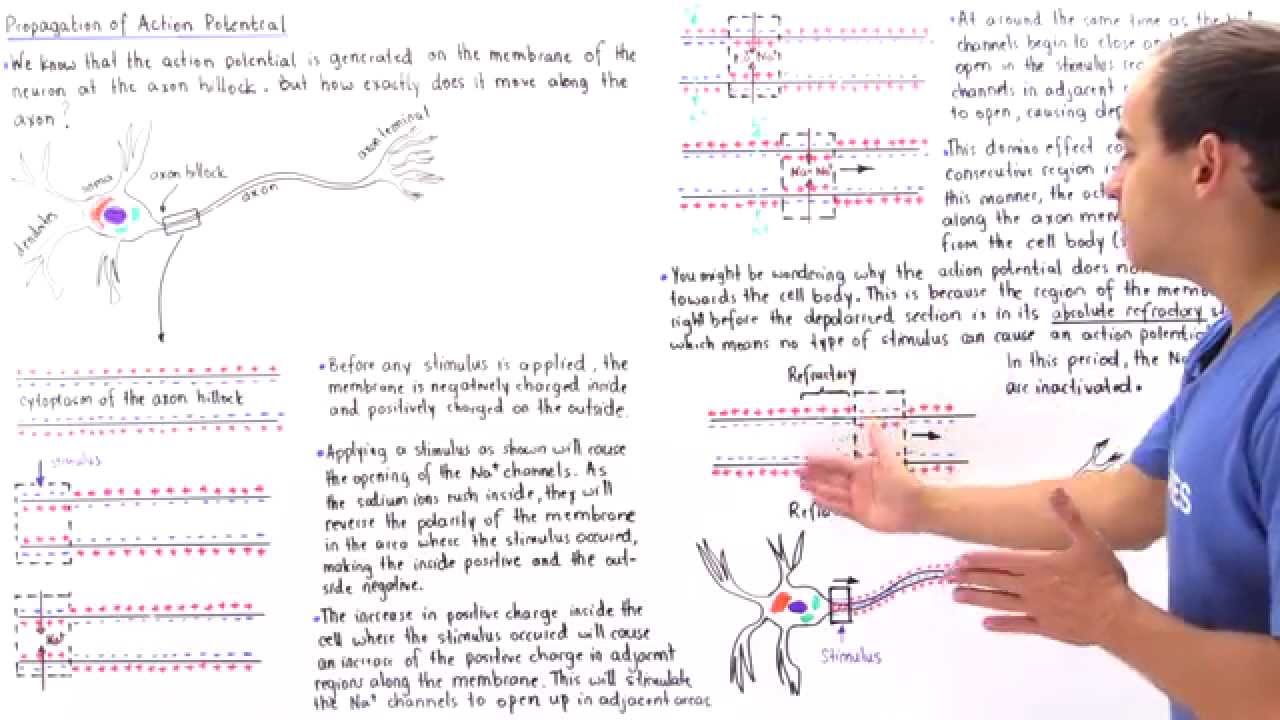 Propagation of Action Potential
• We know that the action potential is generated on the membrane of the
neuron at the axon hillock. But how exactly does it move along the
axon?
soma
axon hillock
axon
axon terminal
dendrites
cytoplasm of the axon hillock
stimulus
Na+
• Before any stimulus is applied, the
membrane is negatively charged inside
and positively charged on the outside.
• Applying a stimulus as shown will cause
the opening of the Na+ channels. As
the sodium ions rush inside, they will
reverse the polarity of the membrane
in the area where the stimulus occured,
making the inside positive and the out-
side negative.
• The increase in positive charge inside the
cell where the stimulus occured will cause
an increase of the positive charge in adjacent
regions along the membrane. This will stimulate
the Na+ channels to open up in adjacent areas
Na+
Na+ Na+
• At around the same time as the
channels begin to close
open in the stimulus
channels in adjacent
to open, causing
• This domino effect
consecutive region
this manner, the
along the axon
from the cell body
• You might be wondering why the action potential does
towards the cell body. This is because the region of the
right before the depolarized section is in its absolute refractory
which means no type of stimulus can cause an action
In this period, the
are inactivated.
Refractory
Stimulus